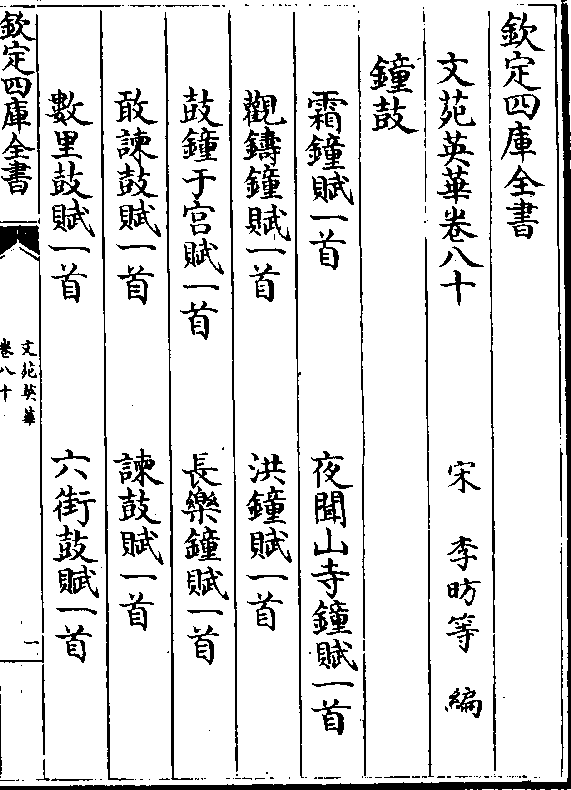 欽定四庫全書
文苑英華卷八十
宋 李昉等 編
鐘鼓
霜鐘賦一首 夜聞山寺鐘賦一首
觀鑄鐘賦一首 洪鐘賦一首
鼓鐘于宮賦一首 長樂鐘賦一首
敢諫鼓賦一首 諫鼓賦一首
數里鼓賦一首 六街鼓賦一首
欽定四庫全書
文苑英華
卷八十
一